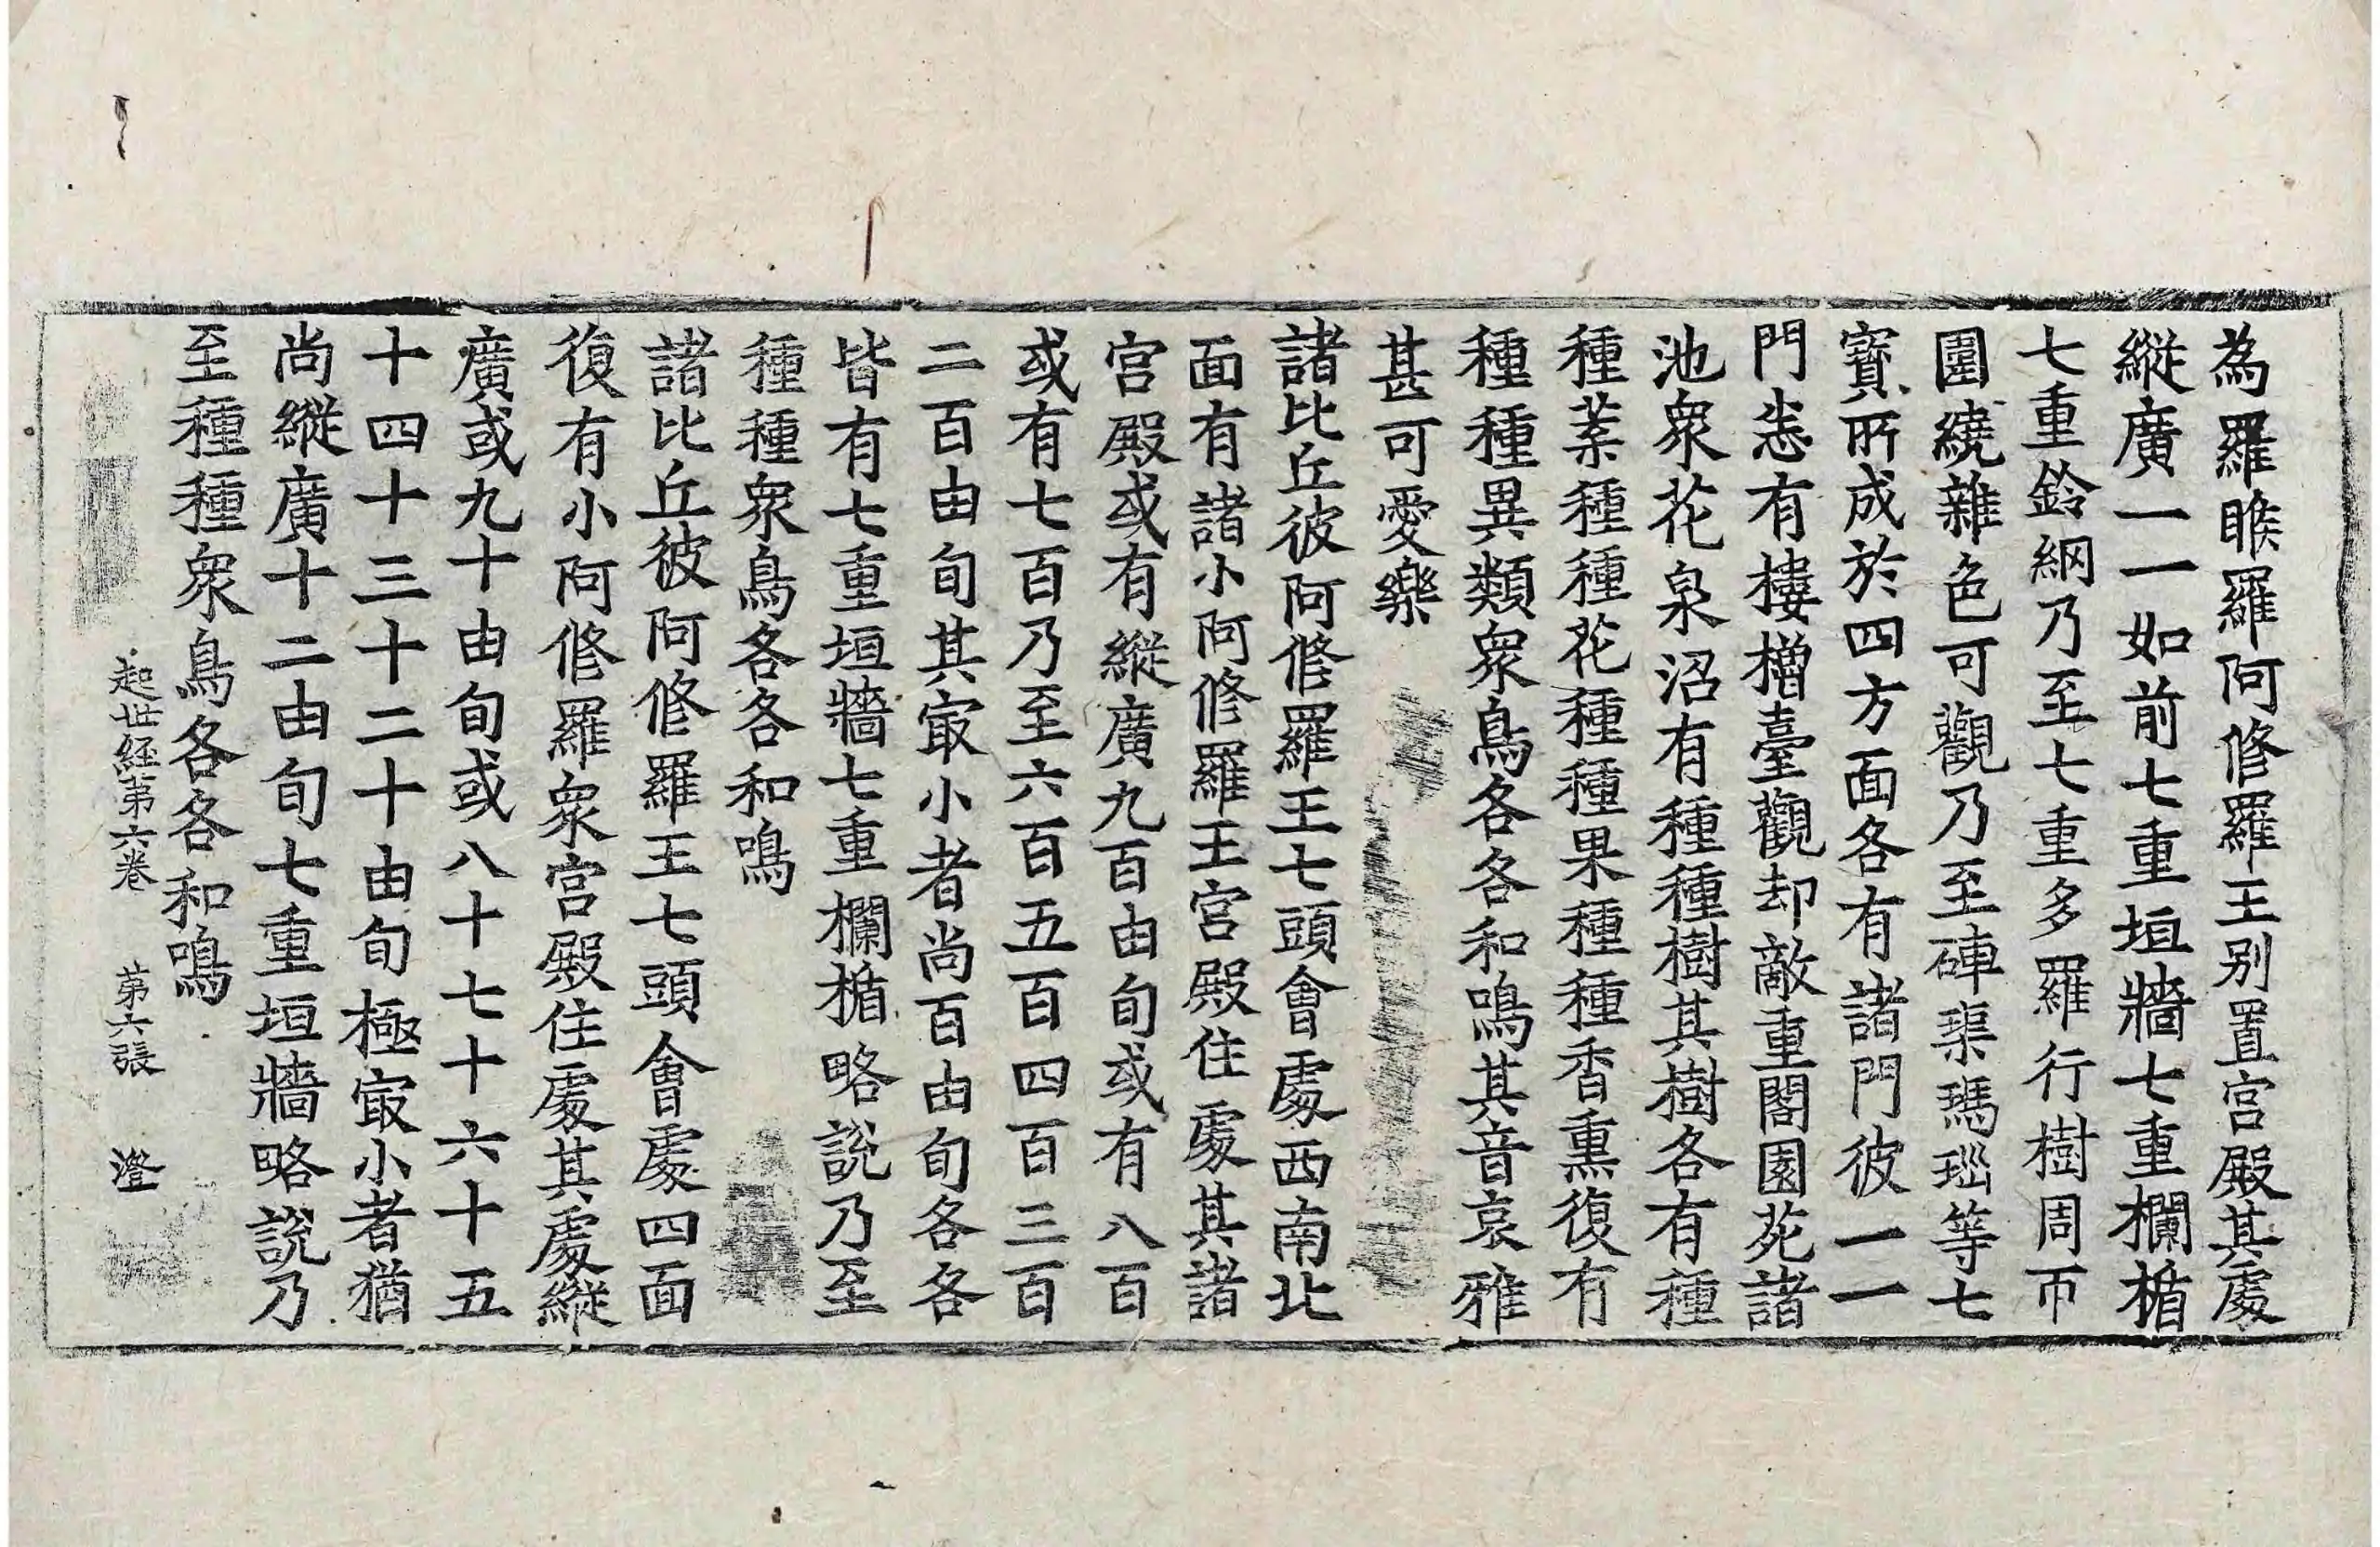 為羅睺羅阿修羅王别置宮殿其處
縱廣一一如前七重垣牆七重欄楯
七重鈴網乃至七重多羅行樹周帀
圍繞雜色可觀乃至硨磲瑪瑙等七
寶所成於四方面各有諸門彼一一
門悉有樓櫓臺觀却敵重閣園苑諸
池衆花泉沼有種種樹其樹各有種
種葉種種花種種果種種香熏復有
種種異類衆鳥各各和鳴其音哀雅
甚可愛樂
諸比丘彼阿修羅王七頭會處西南北
面有諸小阿修羅王宮殿住處其諸
宮殿或有縱廣九百由旬或有八百
或有七百乃至六百五百四百三百
二百由旬其㝡小者尚百由旬各各
皆有七重垣牆七重欄楯略說乃至
種種衆鳥各各和鳴
諸比丘彼阿修羅王七頭會處四面
復有小阿修羅衆宮殿住處其處縱
廣或九十由旬或八十七十六十五
十四十三十二十由旬極㝡小者猶
尚縱廣十二由旬七重垣牆略說乃
至種種衆鳥各各和鳴
起世経苐六卷 苐六張 澄